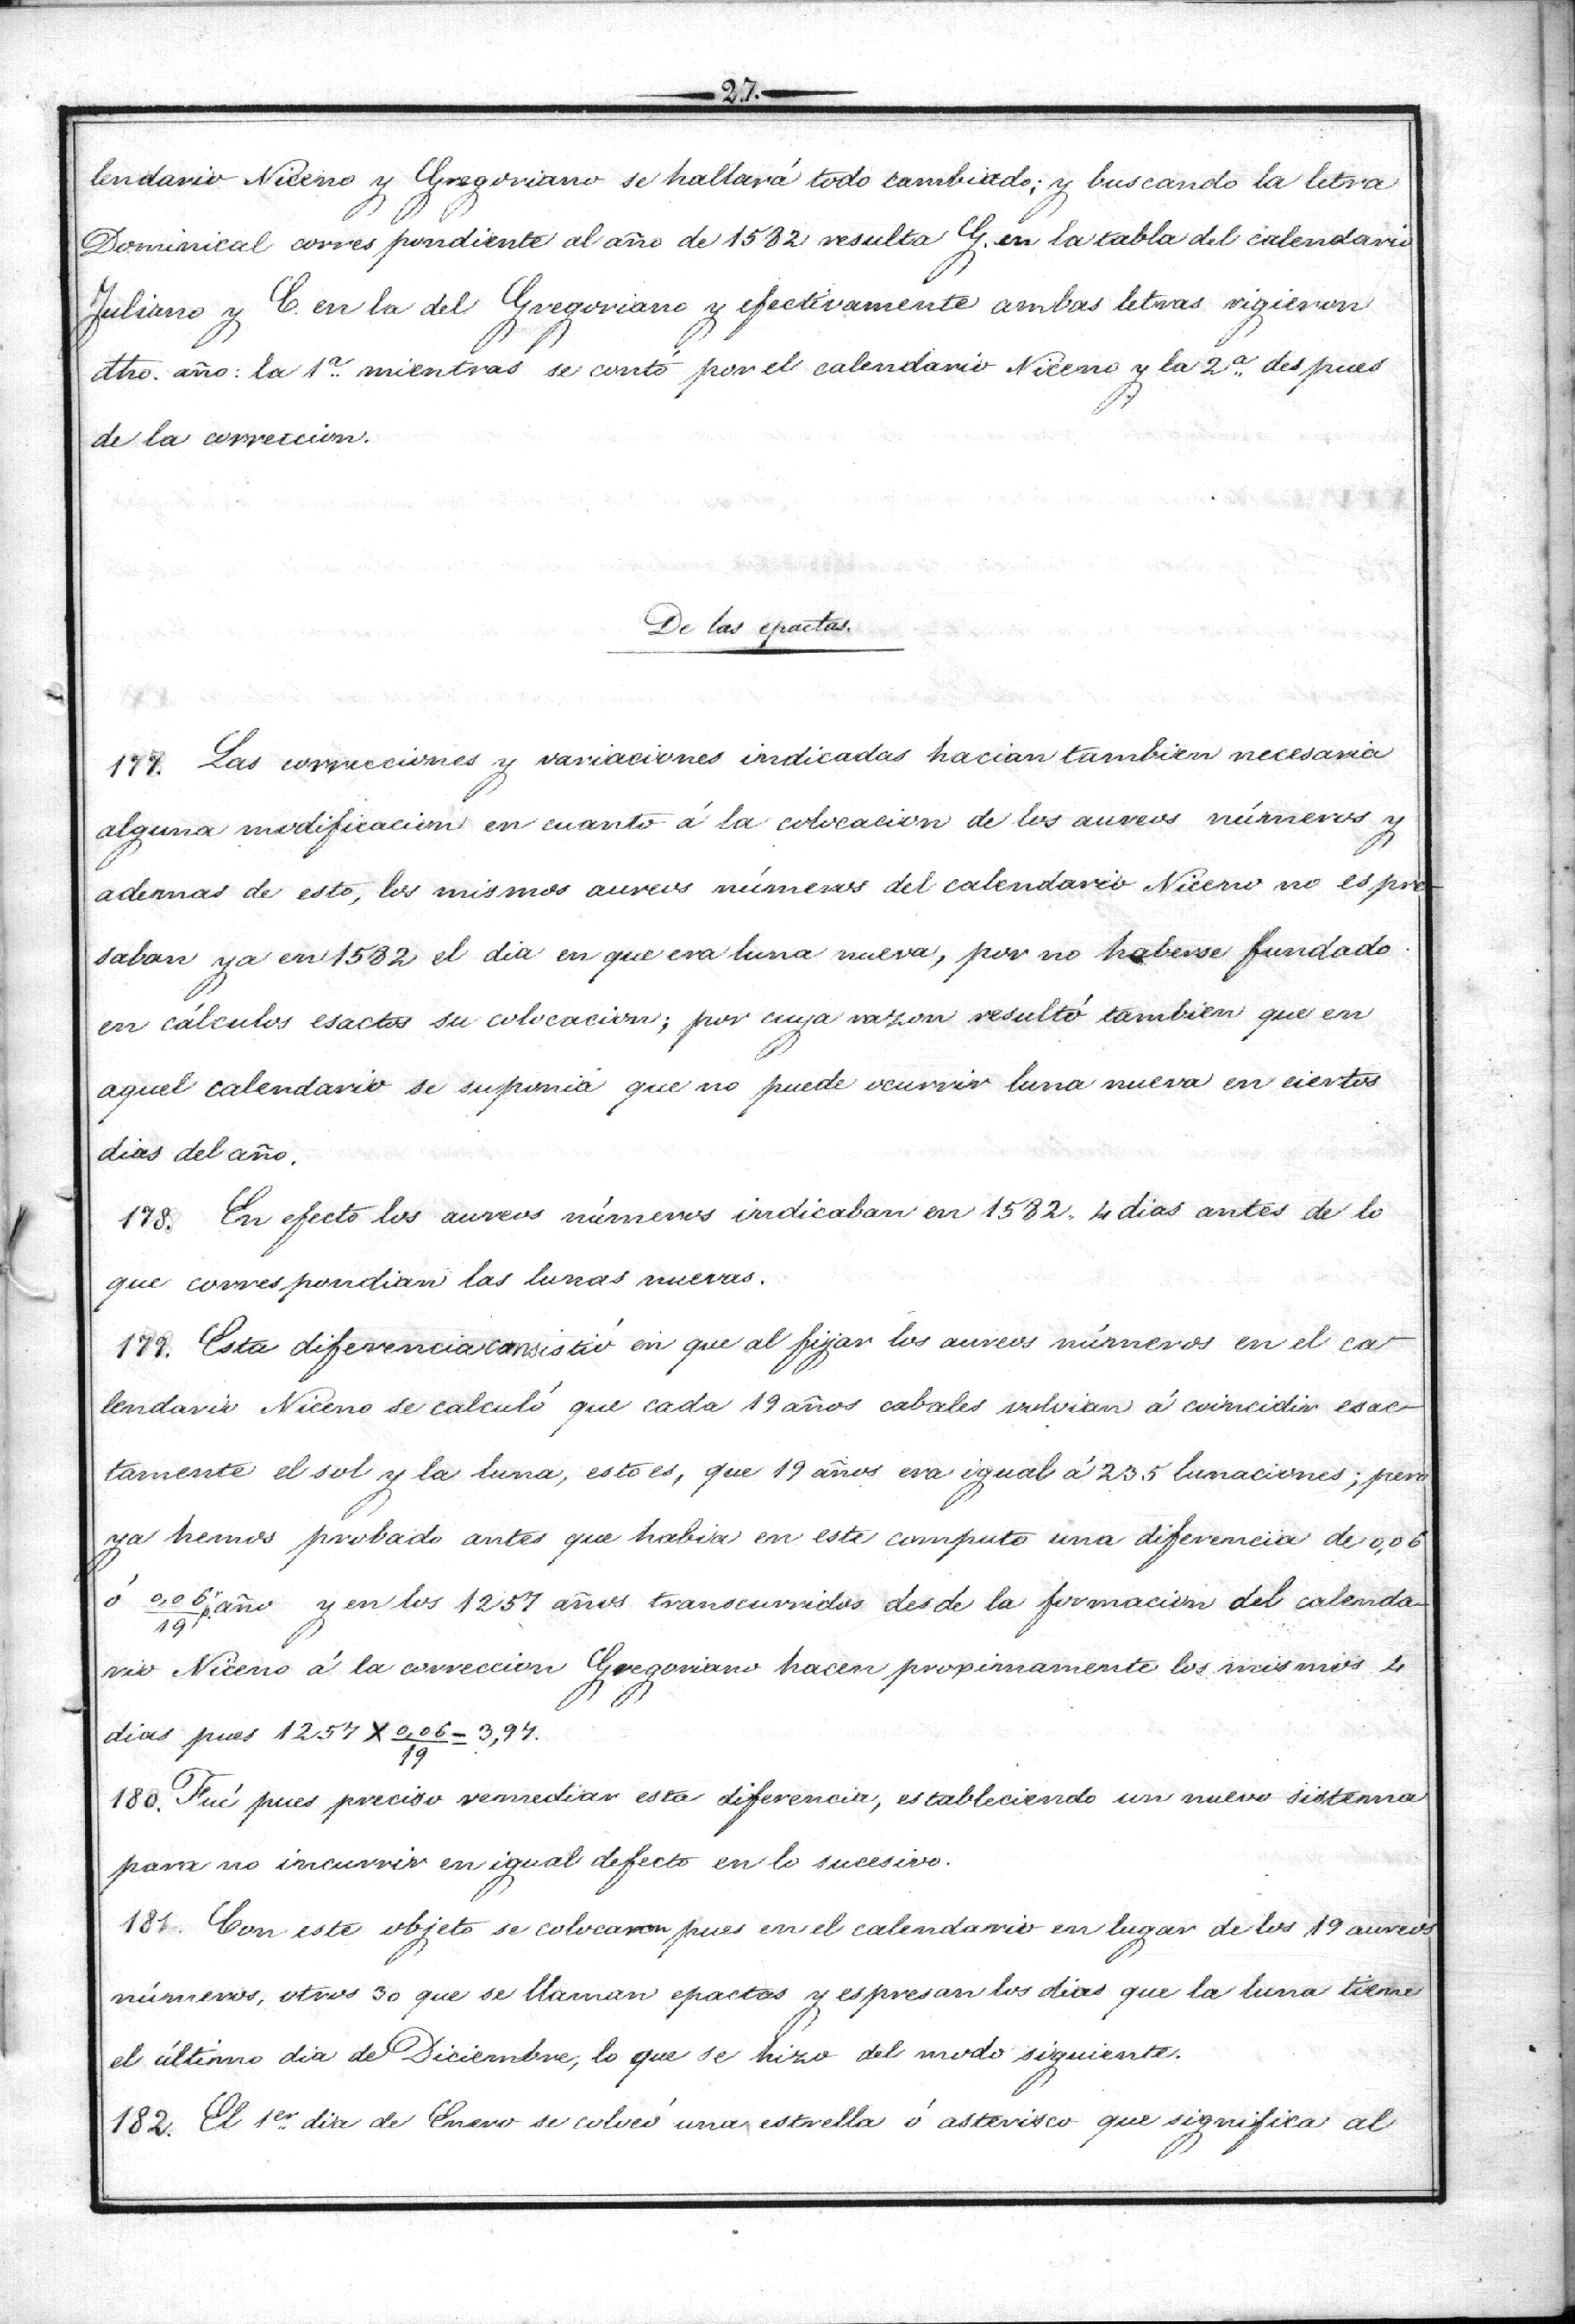 27.
lendario Niceno y Gregoriano se hallará todo cambiado; y buscando la letra
Dominical correspondiente al año de 1582 resulta G. en la tabla del calendario
Juliano y C. en la del Gregoriano y efectivamente ambas letras rigieron
dho. año: la 1ª mientras se contó por el calendario Niceno y la 2ª despues
de la correccion.
De las epactas.
177. Las correcciones y variaciones indicadas hacian tambien necesaria
alguna modificacion en cuanto á la colocacion de los aureos números y
ademas de esto, los mismos aureos números del calendario Niceno no espre-
saban ya en 1582 el dia en que era luna nueva, por no haberse fundado
en cálculos esactos su colocacion; por cuya razon resultó tambien que en
aquel calendario se suponia que no puede ocurrir luna nueva en ciertos
dias del año.
178. En efecto los aureos números indicaban en 1582. 4 dias antes de lo
que correspondian las lunas nuevas.
179. Esta diferencia consistió en que al fijar los aureos números en el ca-
lendario Niceno se calculó que cada 19 años cabales volvian á coincidir esac-
tamente el sol y la luna, esto es, que 19 años era igual á 235 lunaciones; pero
ya hemos probado antes que habia en este computo una diferencia de 0,06
ó 0,06/19 pr. año y en los 1257 años transcurridos desde la formacion del calenda-
rio Niceno á la correccion Gregoriano hacen proximamente los mismos 4
dias pues 1257 X 0,06/19 = 3,97.
180. Fué pues preciso remediar esta diferencia, estableciendo un nuevo sistema
para no incurrir en igual defecto en lo sucesivo.
181. Con este objeto se colocaron pues en el calendario en lugar de los 19 aureos
números, otros 30 que se llaman epactas y espresan los dias que la luna tiene
el último dia de Diciembre, lo que se hizo del modo siguiente.
182. El 1er dia de Enero se colocó una estrella ó asterisco que significa al